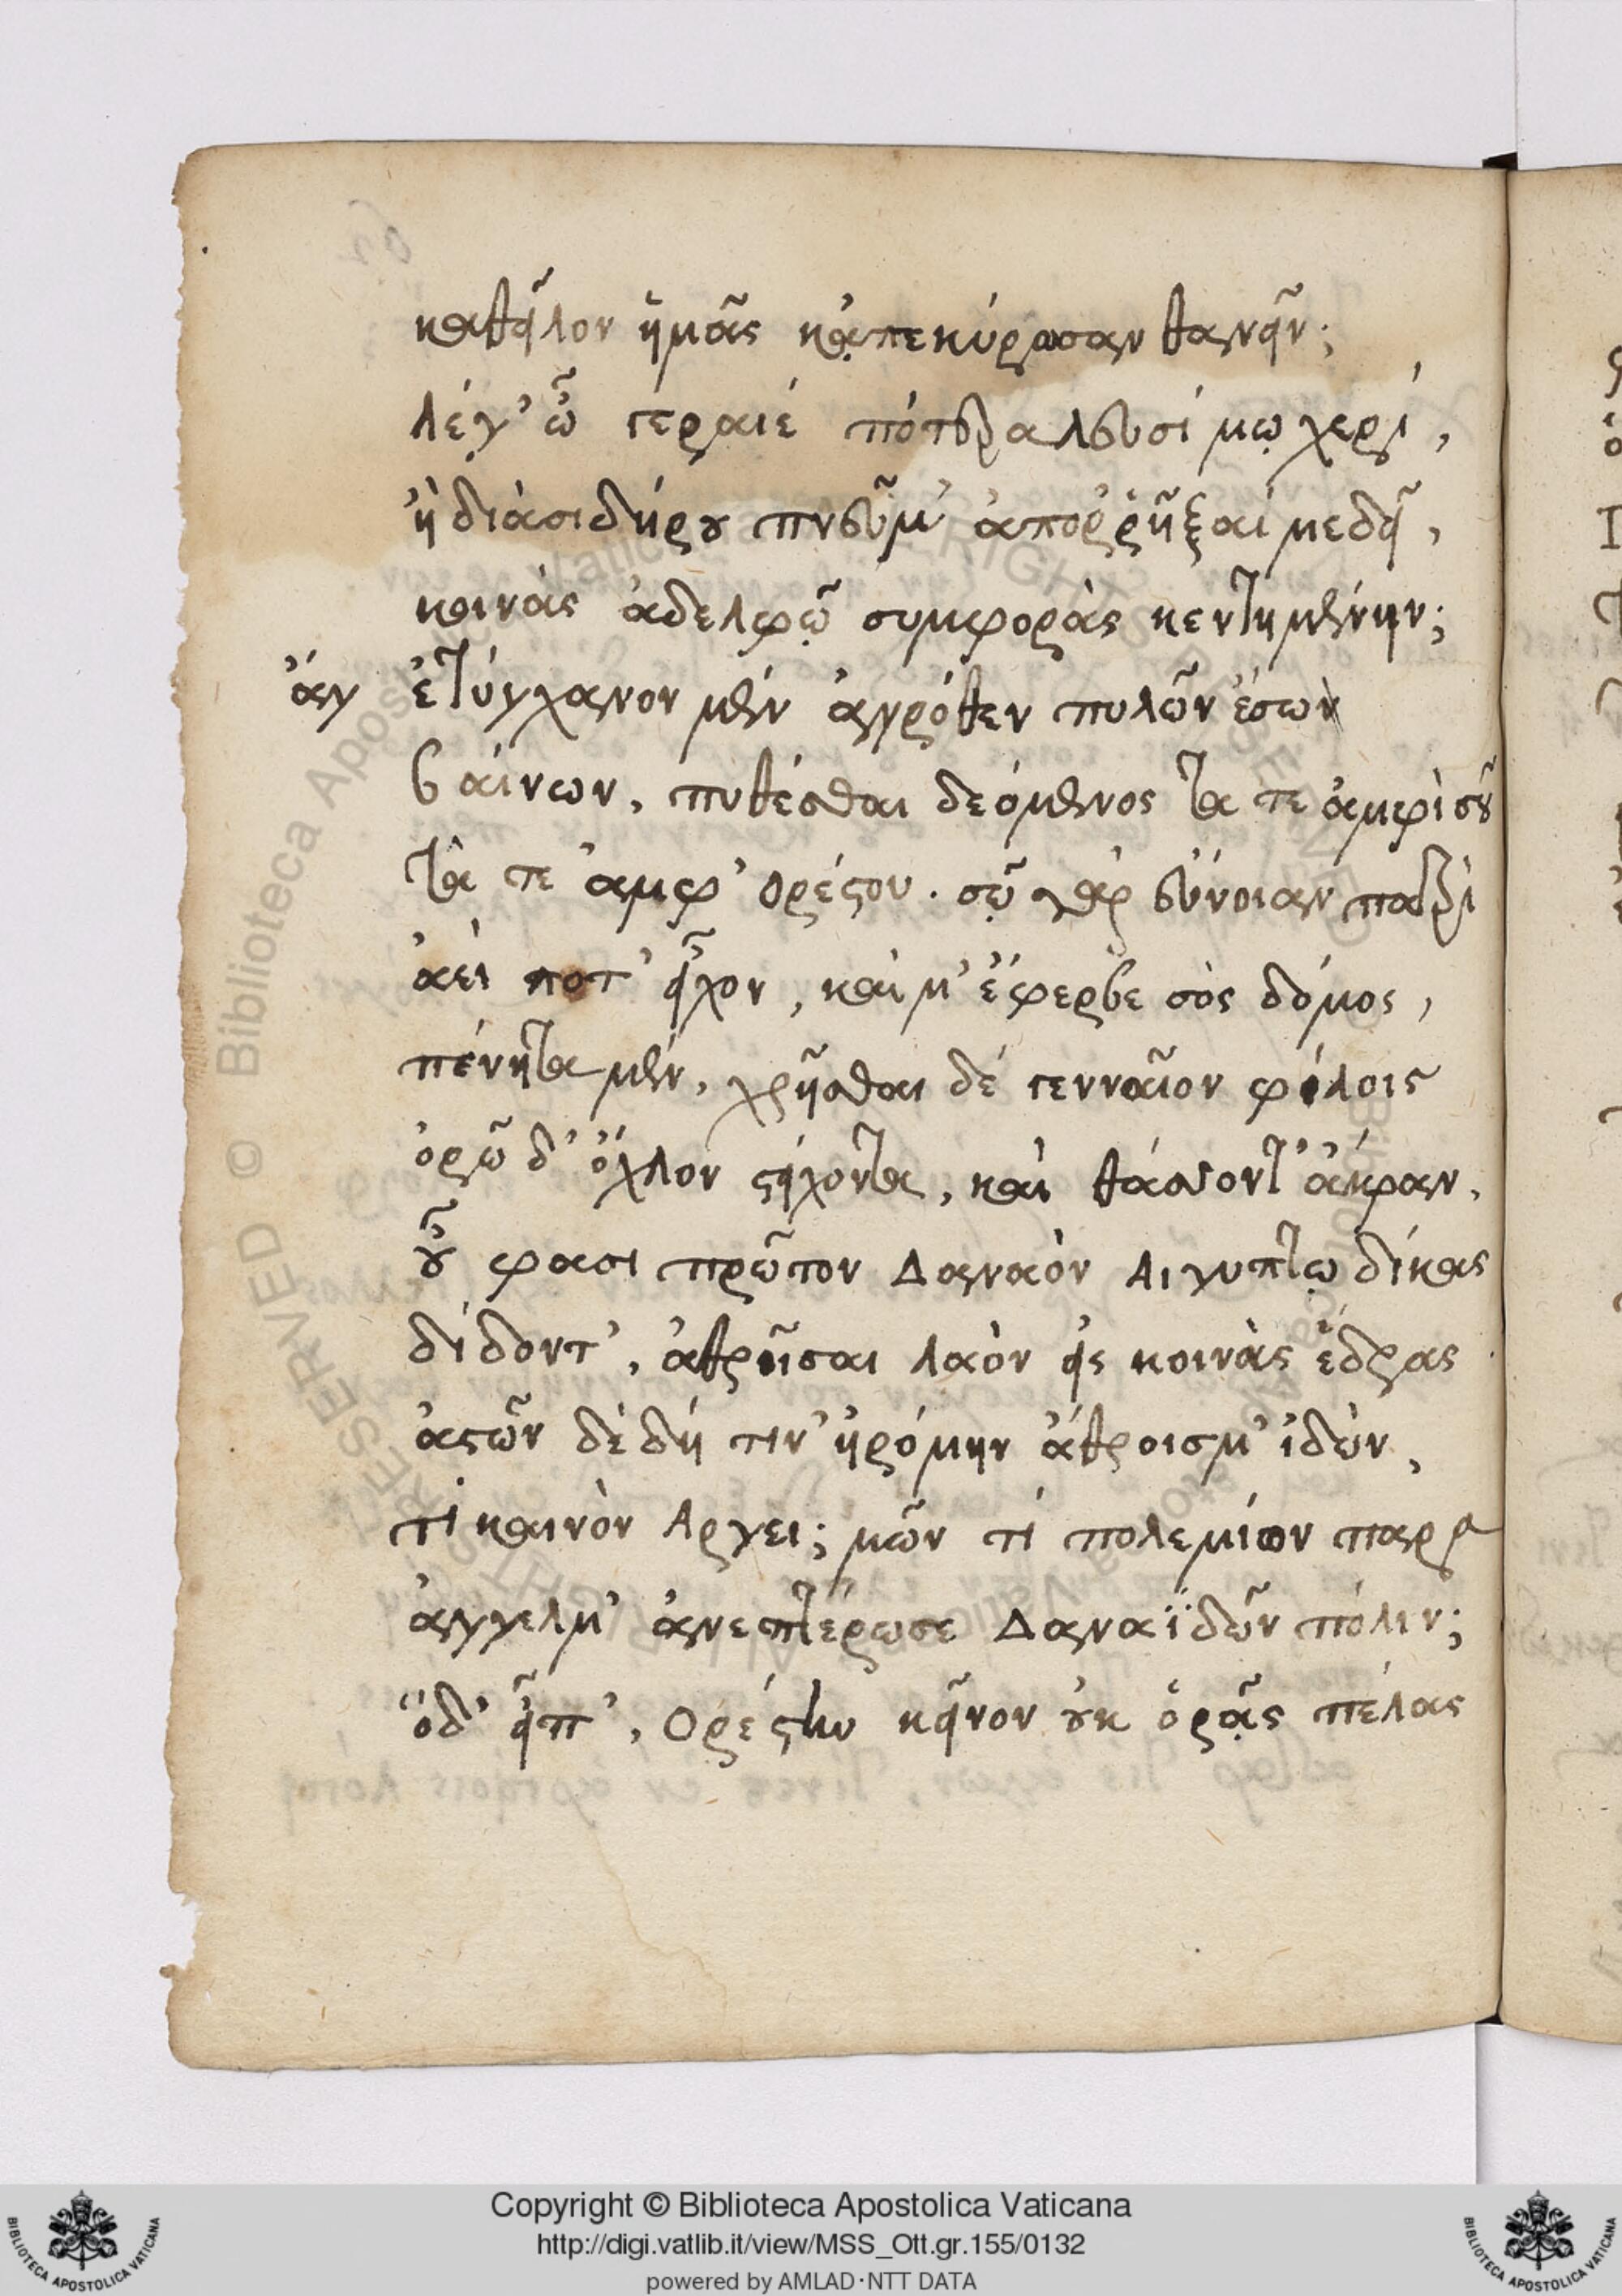 καθεῖλον ἡμᾶς κᾀπεκύρωσαν θανεῖν;
λέγ' ὦ γεραιέ πότερα λευσίμῳ χερί,
ἢ διὰ σιδήρου πνεῦμ' ἀπορρῆξαί με δεῖ,
κοινὰς ἀδελφῷ συμφορὰς κεκτημένην;
ἄγ ἐτύγχανον μὲν ἀγρόθεν πυλῶν ἔσων
βαίνων, πυθέσθαι δεόμενος τά τε ἀμφὶ σοῦ
τά τε ἀμφ' Ορέστου. σῷ γὰρ εὔνοιαν πατρὶ
ἀεί ποτ' εἶχον, καί μ' ἔφερβε σὸς δόμος,
πένητα μὲν, χρῆσθαι δέ γενναῖον φίλοις
ὁρῶ δ' ὄχλον στείχοντα, καὶ θάσσοντ' ἄκραν,
οὗ φασι πρῶτον Δαναὸν Αιγυπτῳ δίκας
δίδοντ', ἀθροῖσαι λαὸν εἰς κοινὰς ἕδρας
ἀστῶν δὲ δή τιν' ἠρόμην ἄθροισμ' ἰδὼν,
τί καινὸν Αργει; μῶν τί πολεμίων παρα
ἄγγελμ' ἀνεπτέρωσε Δαναϊδῶν πόλιν;
ὅδ' εἶπ', Ορέστην κεῖνον οὐκ ὁρᾷς πέλας
Copyright © Biblioteca Apostolica Vaticana
http://digi.vatlib.it/view/MSS_Ott.gr.155/0132
powered by AMLAD·NTT DATA